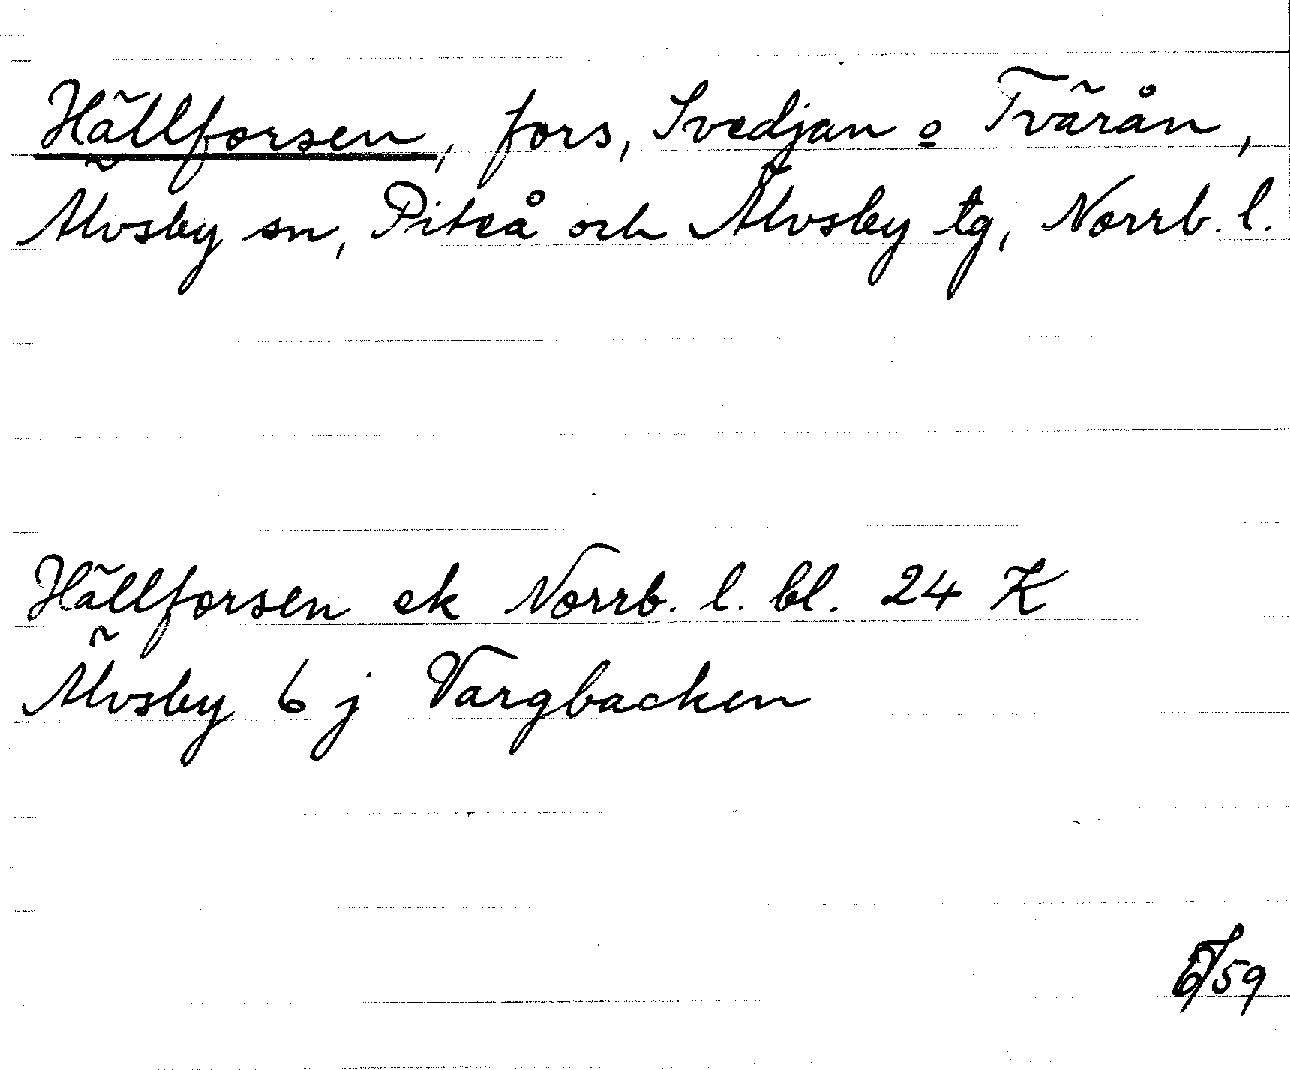 Hällforsen, fors, Svedjan o Tvärån,
Älvsby sn, Piteå och Älvsby tg, Norrb. l.
Hällforsen ek Norrb. l. bl. 24 K
Älvsby 6 j Vargbacken